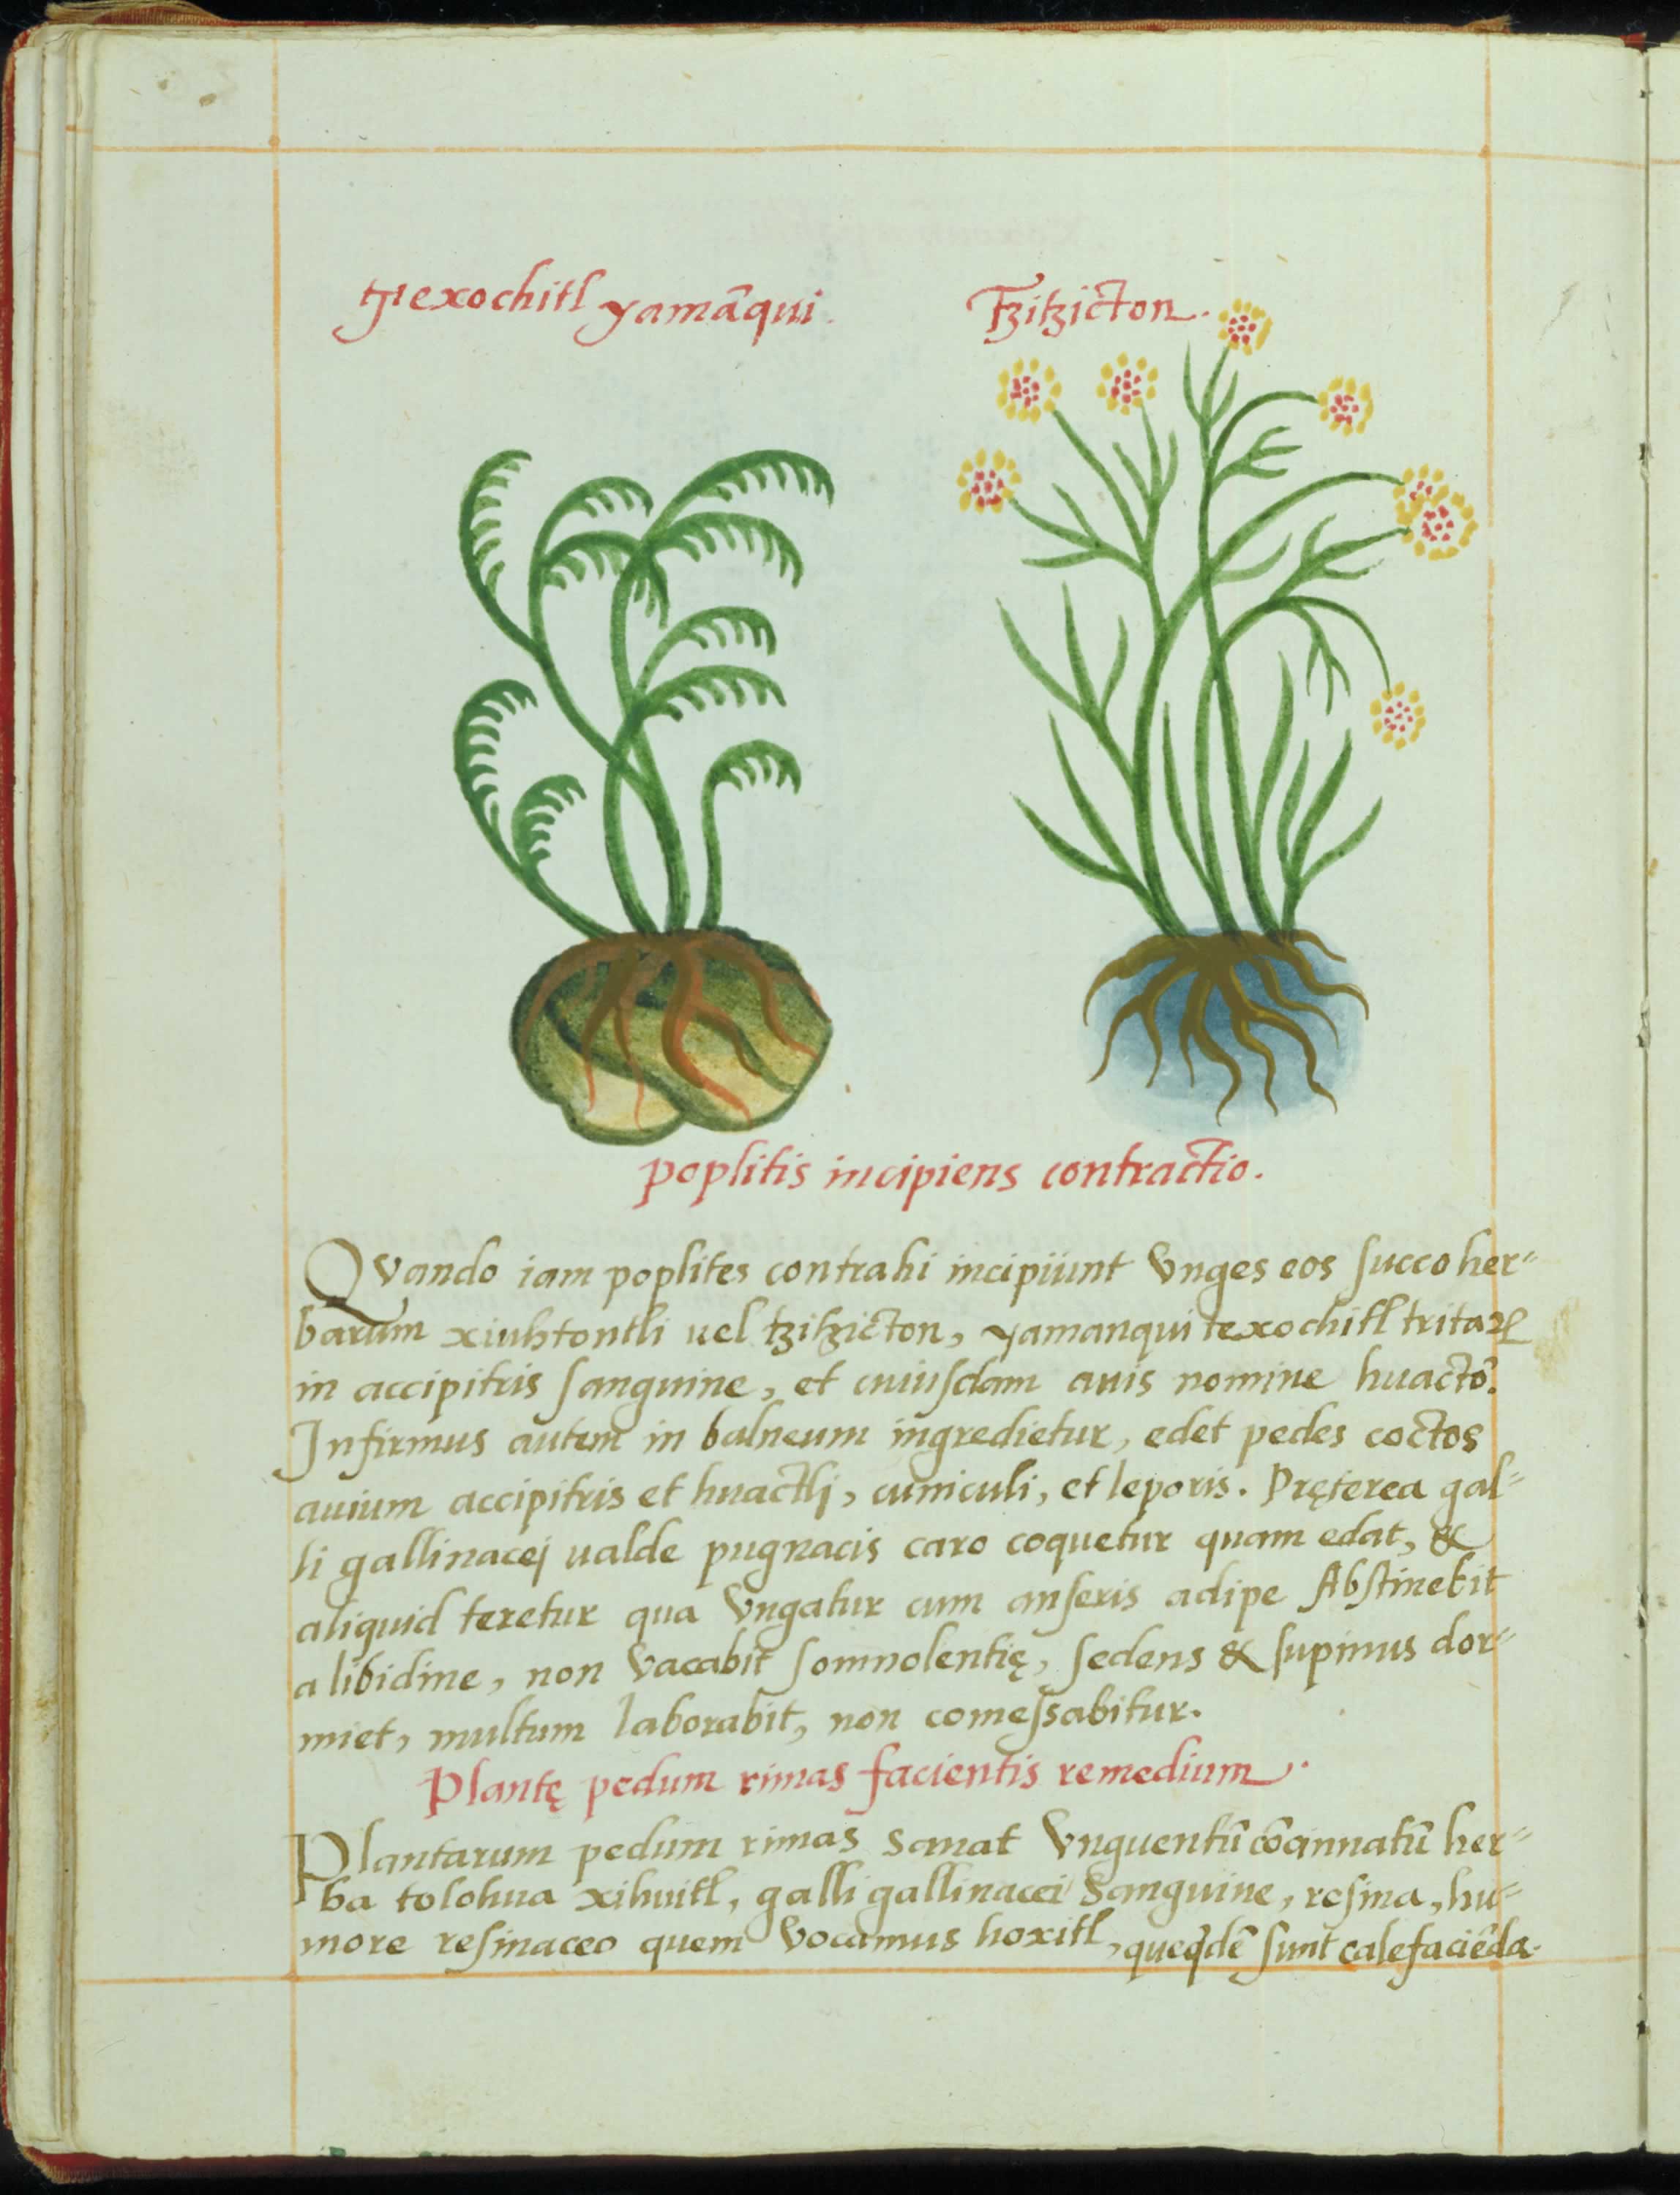 Texochitl yamāqui.
Tzitzicton.
poplitis incipiens contractio.
Qvando iam poplites contrahi incipiunt vnges eos succo her=
barum xiuhtontli uel tzitzicton, yamanqui texochitl tritaꝝ
in accipitris sanguine, et cuiusdam auis nomine huactō.
Infirmus autem in balneum ingredietur, edet pedes coctos
auium accipitris et huactlj, cuniculi, et leporis. Pręterea gal=
li gallinacej ualde pugnacis caro coquetur quam edat, &
aliquid teretur qua vngatur cum anseris adipe Abstinebit
a libidine, non vacabit somnolentię, sedens & supinus dor=
miet, multum laborabit, non comessabitur.
Plantę pedum rimas facientis remedium.
Plantarum pedum rimas sanat vnguentū cōcinnatū her=
ba tolohua xihuitl, galli gallinacei sanguine, resina, hu=
more resinaceo quem vocamus hoxitl, queq̄dē sunt calefaciēda.